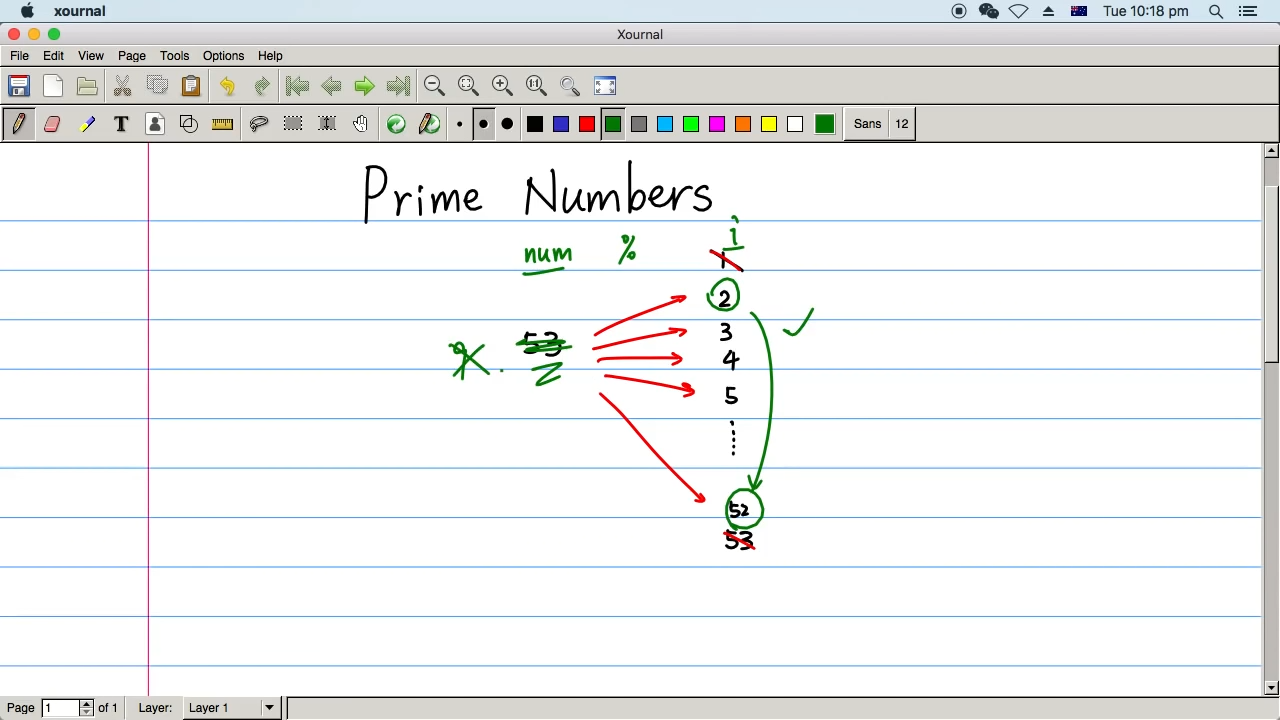 xournal
Tue 10:18 pm
Xournal
File Edit View Page Tools Options Help
1:1
T
T
Sans 12
Prime Numbers
num % i
1
2
53 3
4
5
52
53
Page 1 of 1 Layer: Layer 1